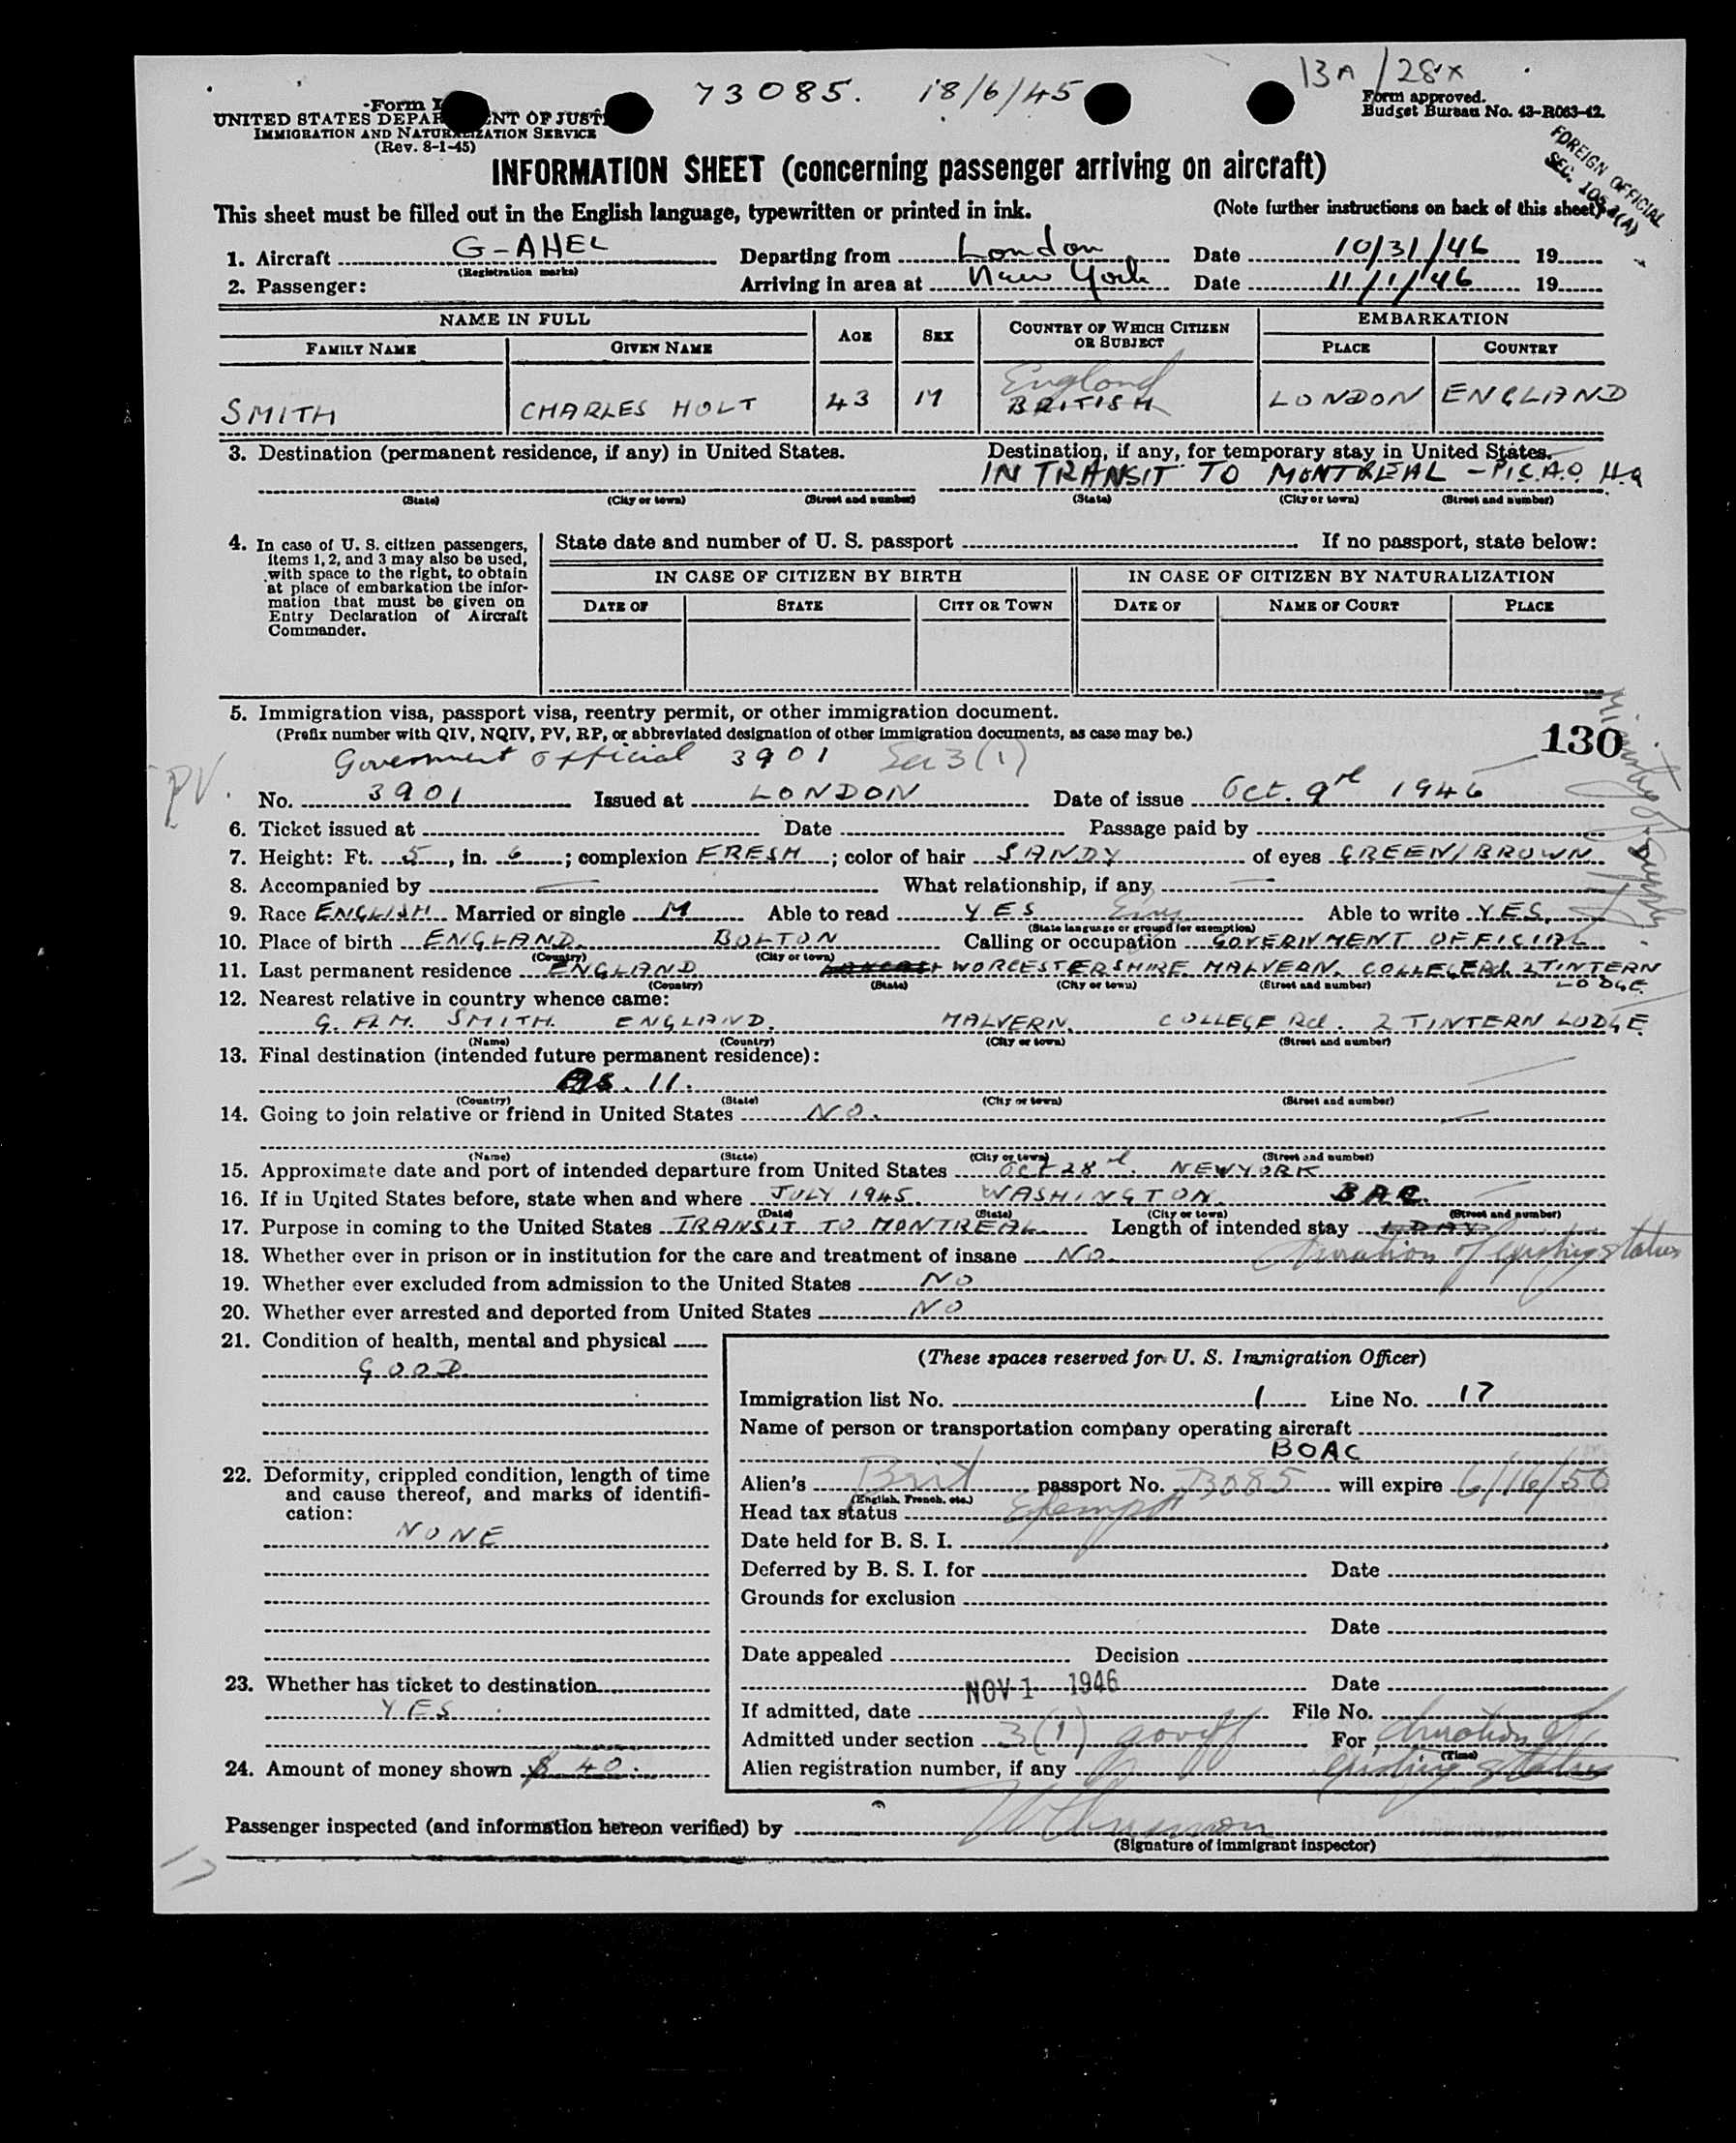 73085. 18/6/45 13A/28x
Form I
UNITED STATES DEPAR NT OF JUSTI
IMMIGRATION AND NATURALIZATION SERVICE
(Rev. 8-1-45)
Form approved.
Budget Bureau No. 43-R063-42.
FOREIGN OFFICIAL
SEC.
INFORMATION SHEET (concerning passenger arriving on aircraft)
This sheet must be filled out in the English language, typewritten or printed in ink. (Note further instructions on back of this sheet)
1. Aircraft G-AHEL Departing from London Date 10/31/46 19
(Registration marks)
2. Passenger: Arriving in area at New York Date 11/1/46 19
NAME IN FULL AGE SEX COUNTRY OF WHICH CITIZEN OR SUBJECT EMBARKATION
FAMILY NAME GIVEN NAME PLACE COUNTRY
England
SMITH CHARLES HOLT 43 M BRITISH LONDON ENGLAND
3. Destination (permanent residence, if any) in United States. Destination, if any, for temporary stay in United States.
IN TRANSIT TO MONTREAL - P.I.C.A.O. H.Q
(State) (City or town) (Street and number) (State) (City or town) (Street and number)
4. In case of U. S. citizen passengers, items 1, 2, and 3 may also be used, with space to the right, to obtain at place of embarkation the information that must be given on Entry Declaration of Aircraft Commander.
State date and number of U. S. passport If no passport, state below:
IN CASE OF CITIZEN BY BIRTH IN CASE OF CITIZEN BY NATURALIZATION
DATE OF STATE CITY OR TOWN DATE OF NAME OF COURT PLACE
5. Immigration visa, passport visa, reentry permit, or other immigration document.
(Prefix number with QIV, NQIV, PV, RP, or abbreviated designation of other immigration documents, as case may be.) 130
Ministry of Supply.
Government Official 3901 Sec 3(1)
PV. No. 3901 Issued at LONDON Date of issue Oct. 9th 1946
6. Ticket issued at Date Passage paid by
7. Height: Ft. 5, in. 6; complexion FRESH; color of hair SANDY of eyes GREEN/BROWN
8. Accompanied by — What relationship, if any —
9. Race ENGLISH Married or single M Able to read YES Eng Able to write YES.
(State language or ground for exemption)
10. Place of birth ENGLAND. BOLTON Calling or occupation GOVERNMENT OFFICIAL
(Country) (City or town)
11. Last permanent residence ENGLAND WORCESTERSHIRE MALVERN. COLLEGE Rd. 2 TINTERN LODGE.
(Country) (State) (City or town) (Street and number)
12. Nearest relative in country whence came:
G. A. M. SMITH. ENGLAND. MALVERN. COLLEGE Rd. 2 TINTERN LODGE.
(Name) (Country) (City or town) (Street and number)
13. Final destination (intended future permanent residence):
AS. 11.
(Country) (State) (City or town) (Street and number)
14. Going to join relative or friend in United States NO.
(Name) (State) (City or town) (Street and number)
15. Approximate date and port of intended departure from United States OCT 28 NEW YORK
16. If in United States before, state when and where JULY 1945. WASHINGTON. B.A.C.
(Date) (State) (City or town) (Street and number)
17. Purpose in coming to the United States TRANSIT TO MONTREAL Length of intended stay 1 DAY
18. Whether ever in prison or in institution for the care and treatment of insane NO. duration of existing status
19. Whether ever excluded from admission to the United States NO
20. Whether ever arrested and deported from United States NO
21. Condition of health, mental and physical
GOOD
22. Deformity, crippled condition, length of time and cause thereof, and marks of identification:
NONE
23. Whether has ticket to destination
YES
24. Amount of money shown $ 40.
(These spaces reserved for U. S. Immigration Officer)
Immigration list No. 1 Line No. 17
Name of person or transportation company operating aircraft
BOAC
Alien's Brit passport No. 73085 will expire 6/16/50
(English, French, etc.)
Head tax status Exempt
Date held for B. S. I.
Deferred by B. S. I. for Date
Grounds for exclusion
Date
Date appealed Decision
Date
NOV 1 1946
If admitted, date File No.
Admitted under section 3(1) govoff For duration of
(Time)
Alien registration number, if any existing status
Passenger inspected (and information hereon verified) by
(Signature of immigrant inspector)
17